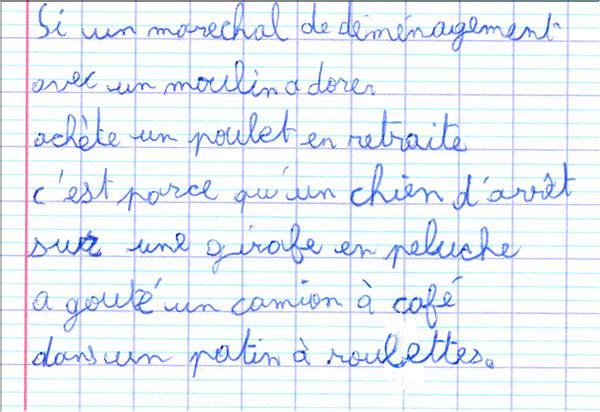 Si un marechal de déménagement
avec un moulin a dorer
achète un poulet en retraite
c'est parce qu'un chien d'arrêt
sur une girafe en peluche
a gouté un camion à café
dans un patin à roulettes.